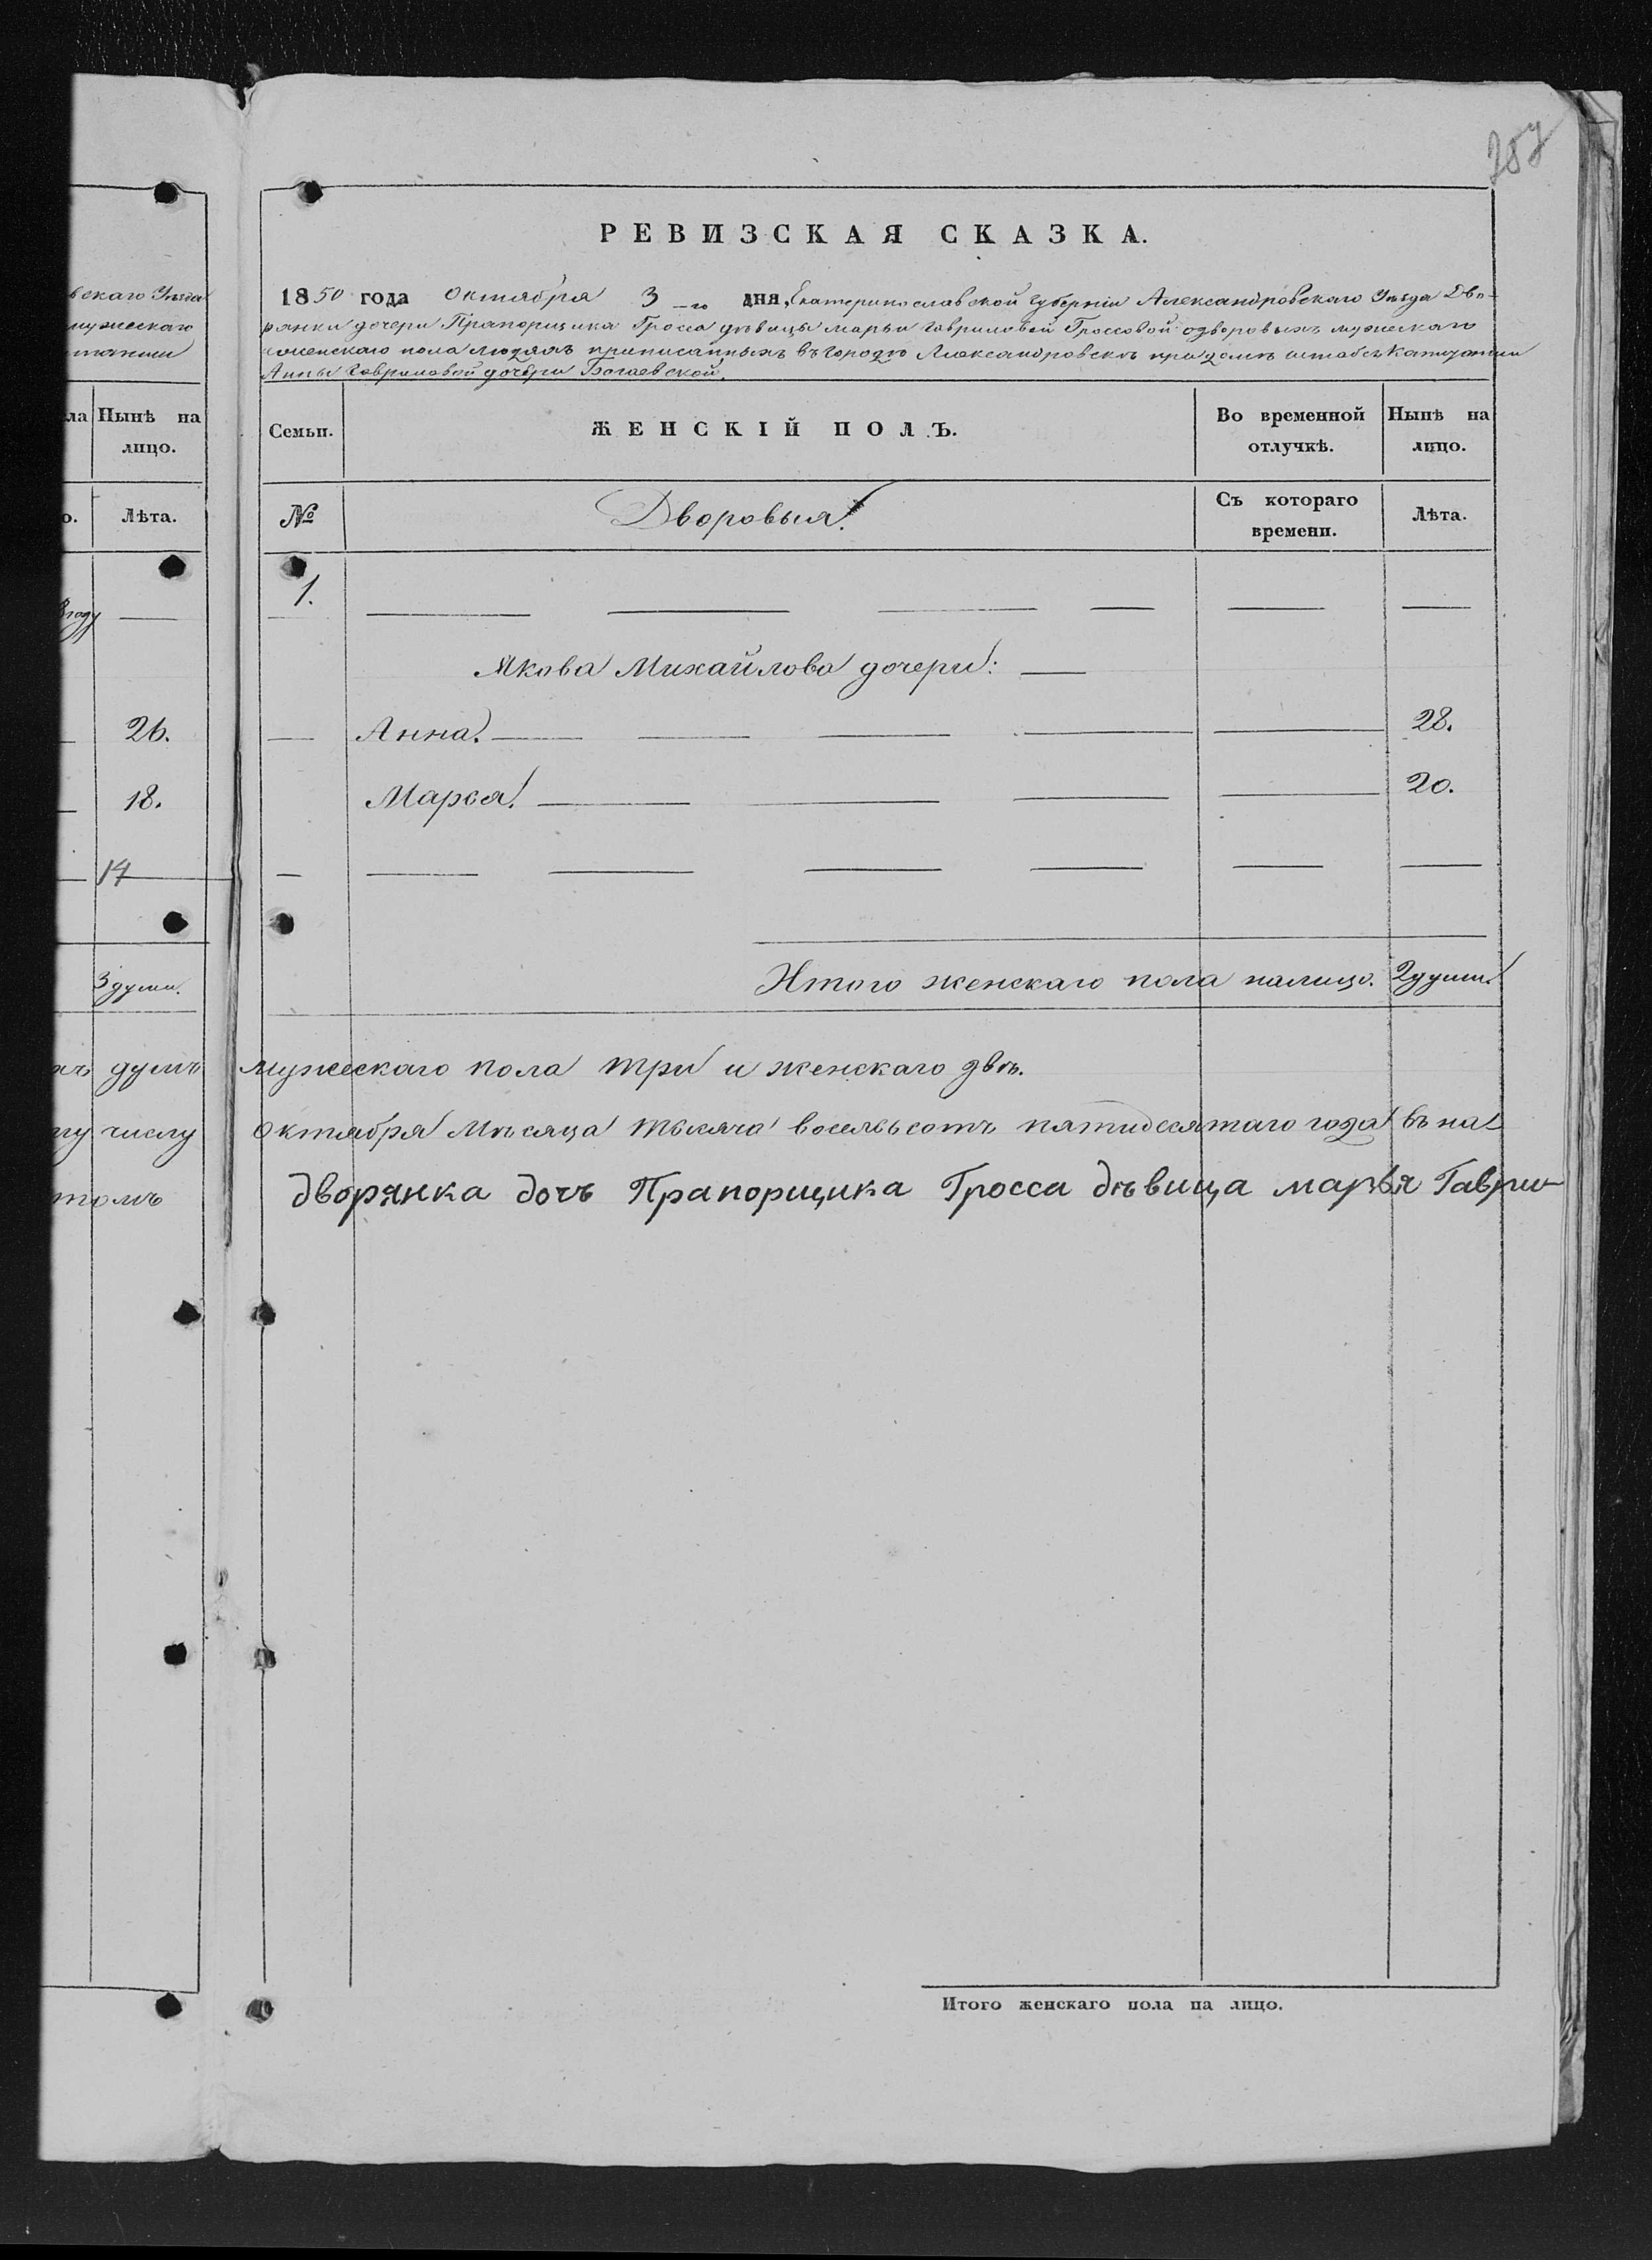 257
РЕВИЗСКАЯ СКАЗКА.
1850 года Октября 3-го дня, Екатеринославской Губерніи Александровскаго Уѣзда Дво-
рянки дочери Прапорщика Гросса дѣвицы марьи Гавриловой Гроссовой одворовыхъ мужескаго
иженскаго пола людяхъ приписанныхъ въ городѣ Александровскѣ при домѣ штабсъ Капитанши
Анны Гавриловой дочери Богаевской.
вскаго Уѣзда
мужескаго
ла
Нынѣ на лицо.
Лѣта.
году
26.
18.
14
3 души.
душъ
числу
томъ
Семьи.
ЖЕНСКІЙ ПОЛЪ.
Во временной отлучкѣ.
Нынѣ на лицо.
№
Дворовыя.
Съ котораго времени.
Лѣта.
1.
Якова Михайлова дочери:
Анна. 28.
Марѳа. 20.
Итого женскаго пола налицо. 2 души.
мужескаго пола три и женскаго двѣ.
Октября Мѣсяца тысяча восемьсотъ пятидесятаго года въ на
дворянка дочь Прапорщика Гросса дѣвица марья Гаври-
Итого женскаго пола на лицо.